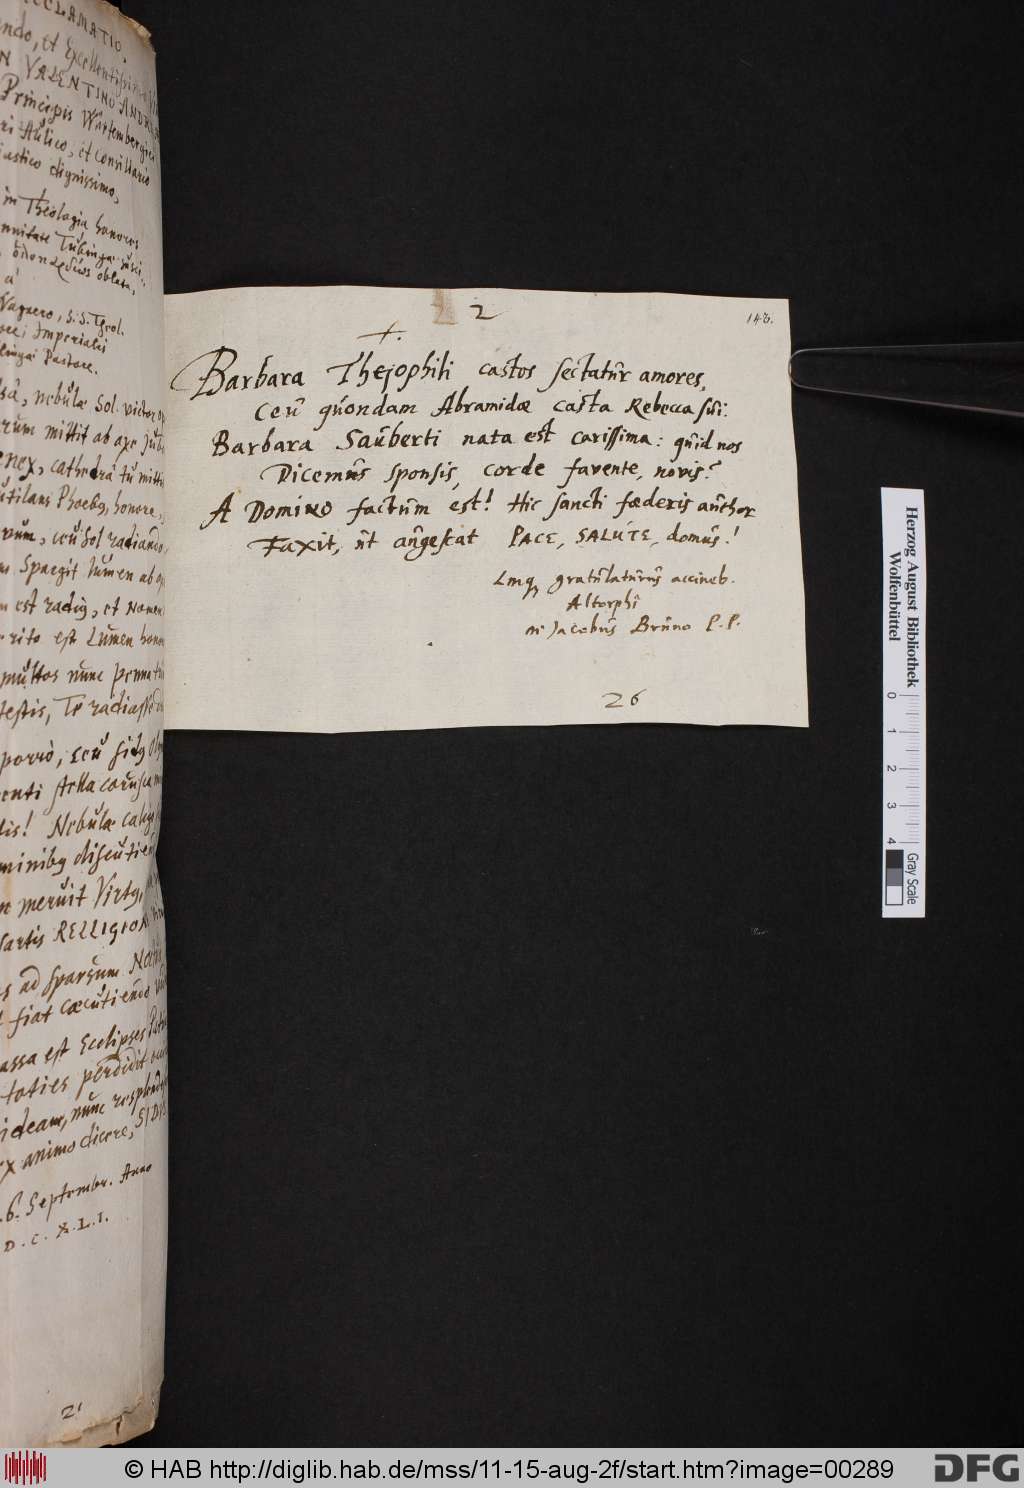 ACCLAMATIO.
ando, et Excellentissimo
VALENTINO ANDR
Principis Würtembergici
Aulico, et Consiliario
iastico dignissimo,
in Theologia honores
Tubingae
oblata,
à
Vagnero, S.S. Theol.
Imperialis
Pastore.
nebulae Sol victor
rum mittit ab axe
enex, cathedrâ tu mittis
utilans Phoebus, honore,
ceu Sol radiando,
Spargit lumen ab
est radius, et Nomen
rito est Lumen
multos nunc
testis, Te radiasse
porrò, ceu sidus
enti stella
dis! Nebulae
minibus discutien
meruit Virtus,
artis RELLIGION
ad sparsum
fiat caecutiendo
assa est Eclipses
toties perdidit
ideam, nunc resplende
ex animo dicere, SIDUS
6. Septembr. Anno
D.C.X.L.I.
21
2
143.
+.
Barbara Thejophili castos sectatur amores,
Ceu quondam Abramidae casta Rebecca sui:
Barbara Sauberti nata est carissima: quid nos
Dicemus sponsis, corde favente, novis?
A DomiNO factum est! Hic sancti foederis author
Faxit, ut augescat PACE, SALUTE, domus!
Lmq gratulaturus accineb.
Altorphi
M. Jacobus Bruno P.P.
26
Herzog August Bibliothek
Wolfenbüttel
0 1 2 3 4
Gray Scale
© HAB http://diglib.hab.de/mss/11-15-aug-2f/start.htm?image=00289
DFG